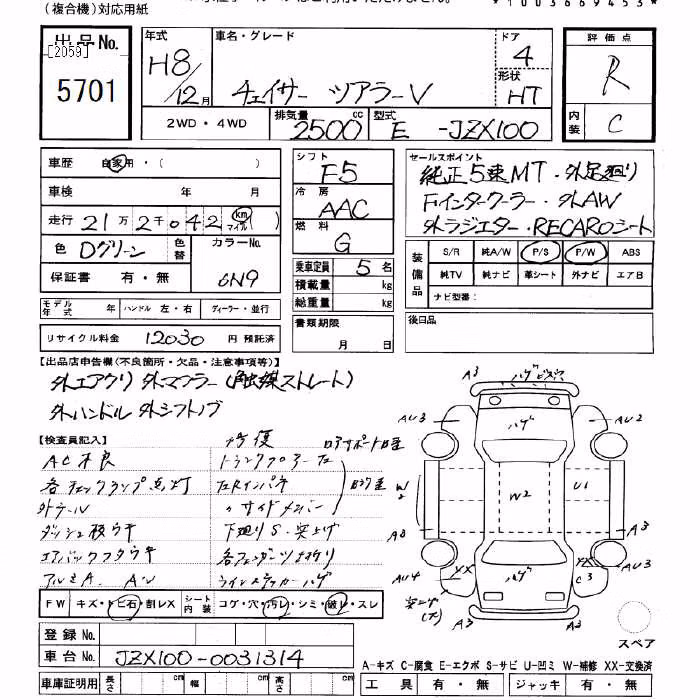 (複合機)対応用紙
*1003669453*
出品No.
[2059]
5701
年式 車名・グレード ドア
H8/12月 チェイサー ツアラーV 4
形状 HT
2WD・4WD 排気量 2500cc 型式 E -JZX100
評価点 R
内装 C
車歴 自家用・( )
車検 年 月
走行 21万2千042 km マイル
色 Dグリーン 色替 カラーNo. 6N9
保証書 有・無
シフト F5
冷房 AAC
燃料 G
乗車定員 5名
積載量 kg
総重量 kg
書類期限
月 日
セールスポイント
純正5速MT・外足廻り
Fインタークーラー・外AW
外ラジエター・RECAROシート
装備品 S/R 純A/W P/S P/W ABS
純TV 純ナビ 革シート 外ナビ エアB
ナビ型番:
後日品
モデル年式 年 ハンドル 左・右 ディーラー・並行
リサイクル料金 12030 円 預託済
【出品店申告欄(不良箇所・欠品・注意事項等)】
外エアクリ 外マフラー(触媒ストレート)
外ハンドル 外シフトノブ
【検査員記入】
修復
AC不良
各チェックランプ点灯
外テール
ダッシュ板ウキ
エアバックフタウキ
アルミA. AU
下廻りS・突上げ
ラインステッカーハゲ
A3
ハゲ
AU3
AU2
W2
U1
A3
A3
AU4
XX
XX
C3
ハゲ
A3
A3
FW キズ・トビ石・割レX シート内装 コゲ・穴・汚レ・シミ・破レ・スレ
スペア
登録No.
車台No. JZX100-0031314
A-キズ C-腐食 E-エクボ S-サビ U-凹ミ W-補修 XX-交換済
車庫証明用 長さ cm 幅 cm 高さ cm
工具 有・無 ジャッキ 有・無